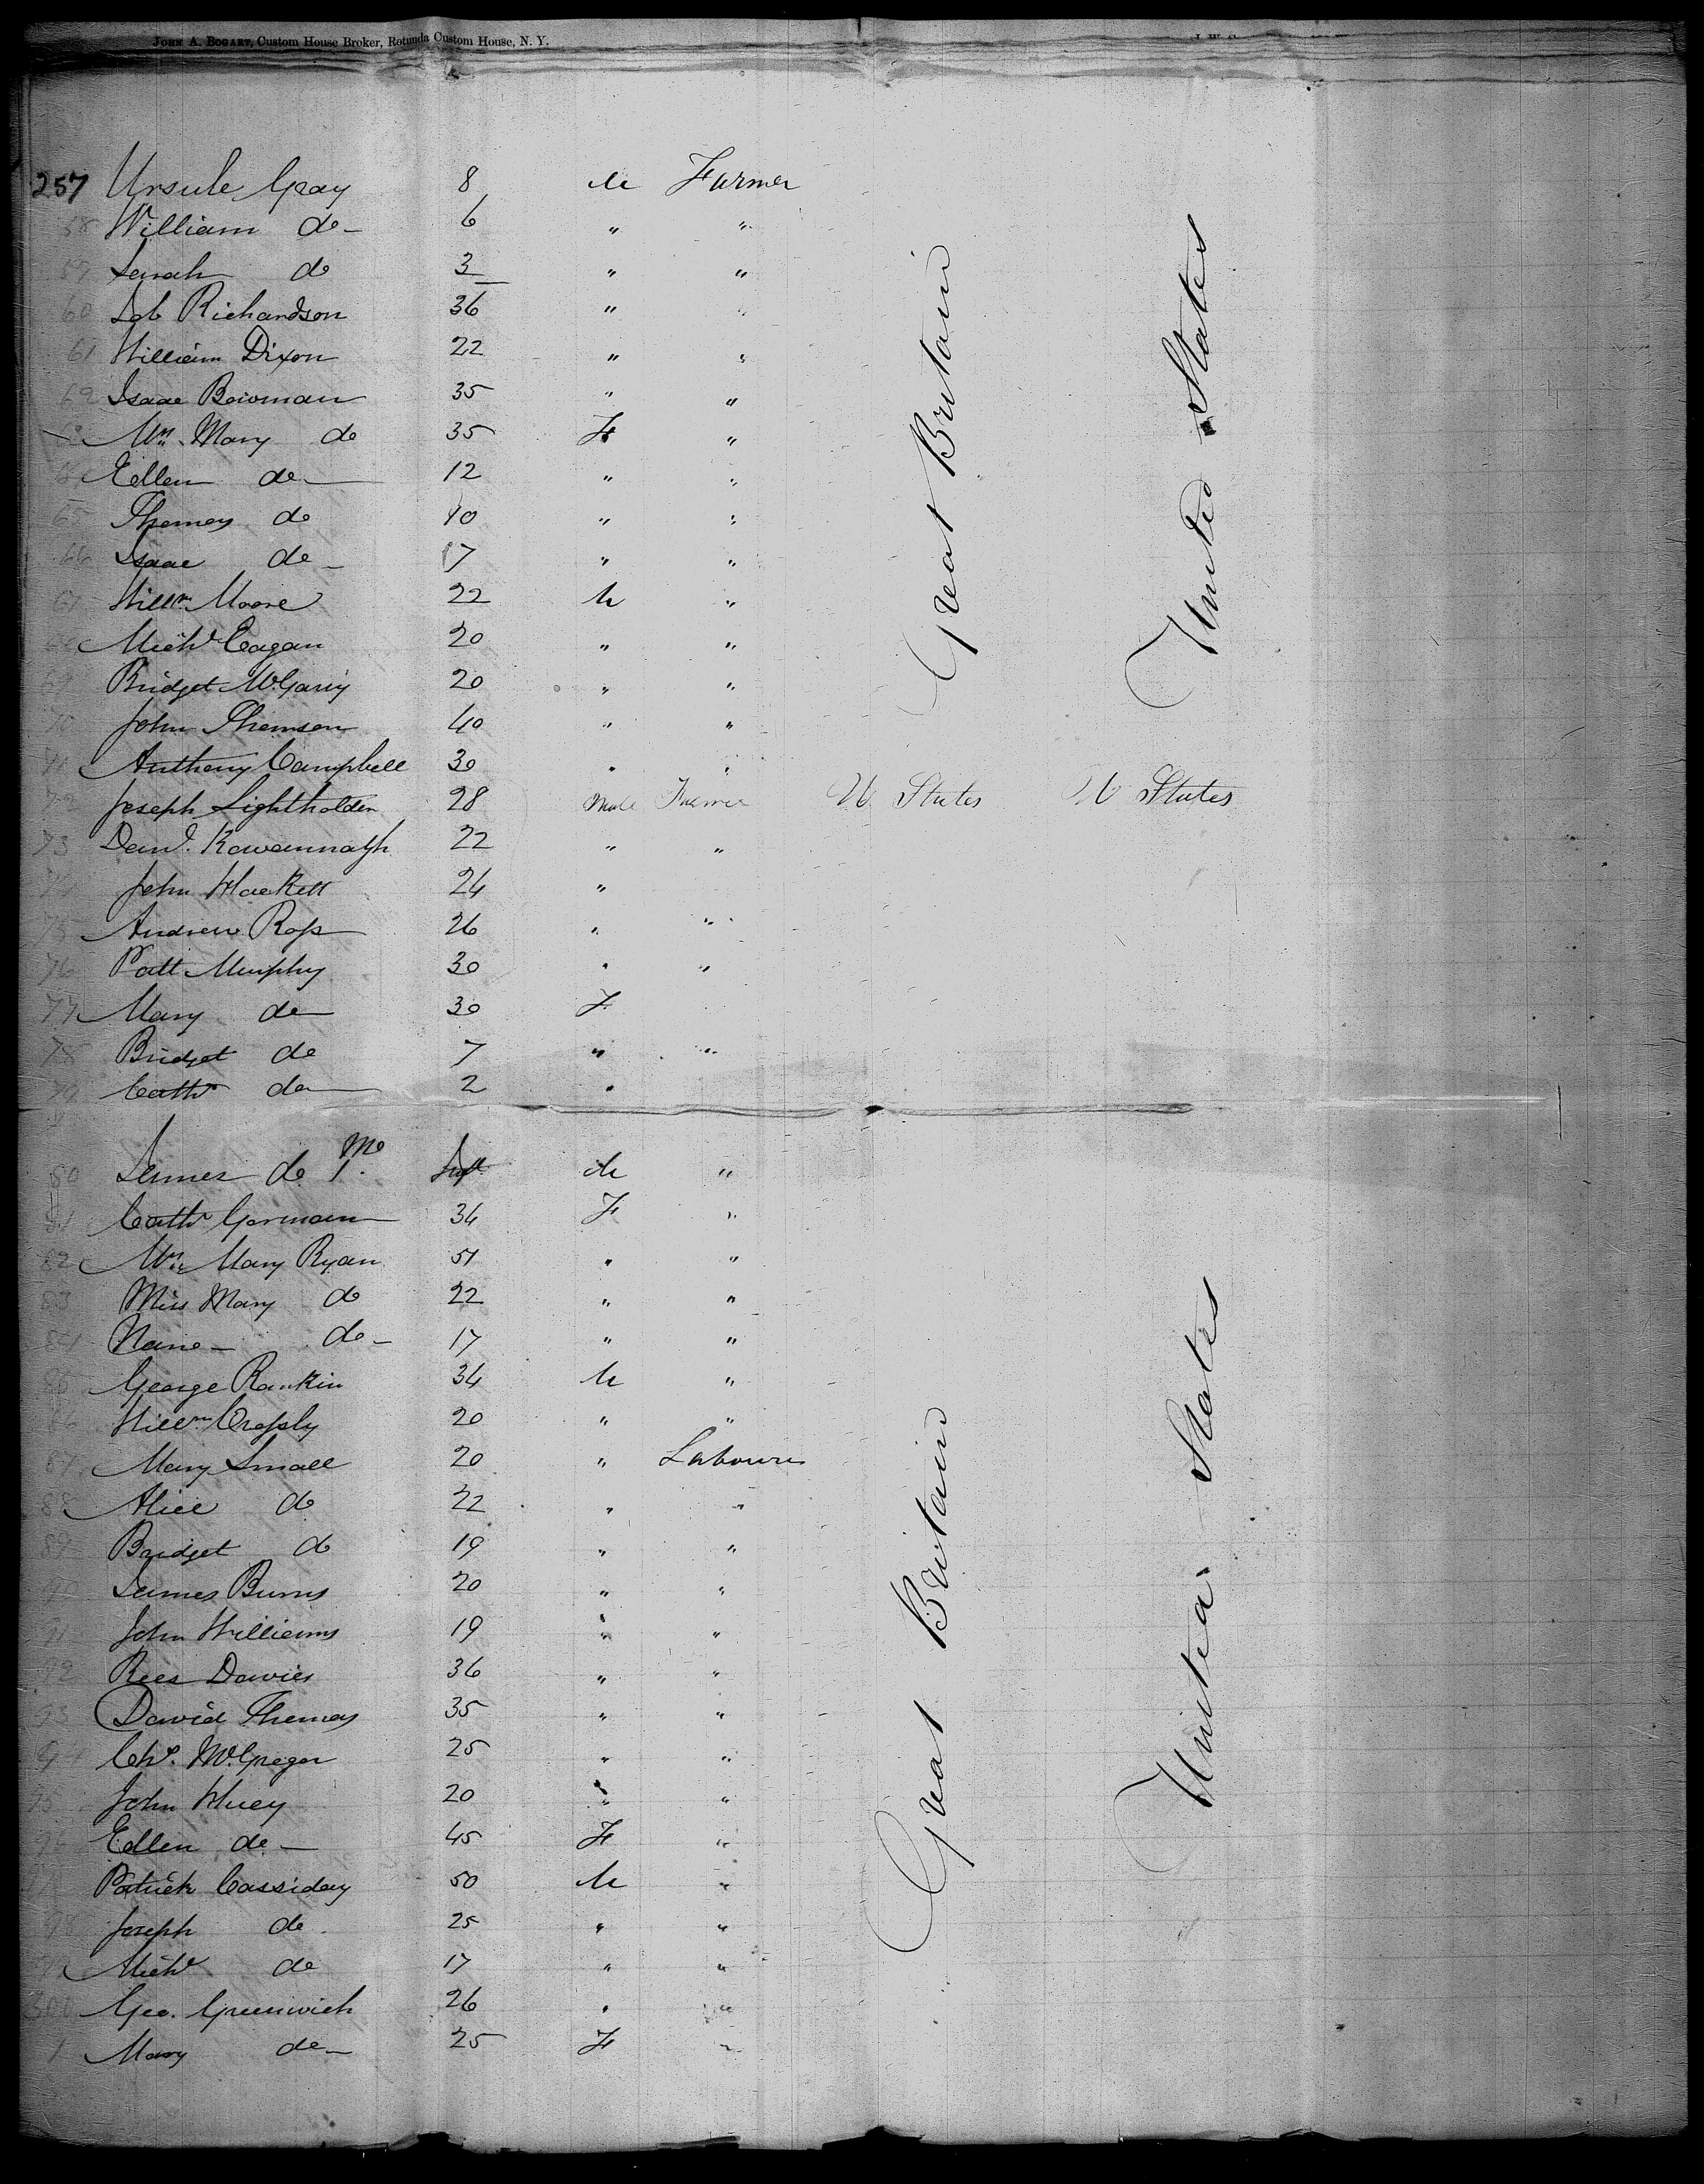 JOHN A. BOGART, Custom House Broker, Rotunda Custom House, N. Y.
257 Ursule Gray 8 M Farmer
58 William do 6 " "
59 Sarah do 3 " "
60 Job Richardson 36 " "
61 William Dixon 22 " "
62 Isaac Bowman 35 " "
63 Mrs. Mary do 35 F "
64 Ellen do 12 " "
65 Thomas do 10 " "
66 Isaac do 7 " "
67 Willm. Moore 22 M "
68 Michl Eagan 20 " "
69 Bridget McGarry 20 " "
70 John Thomson 40 " "
71 Anthony Campbell 30 " "
Great Britain
United States
72 Joseph Lightholder 28 Male Farmer U States U States
73 Danl. Kawannagh 22 " "
74 John Hackett 24 "
75 Andrew Ross 26 " "
76 Patt Murphy 30 " "
77 Mary do 30 F
78 Bridget do 7 " "
79 Cathe do 2 "
80 James do 1 Mo Inft M "
81 Cathe Gorman 34 F "
82 Mrs. Mary Ryan 51 " "
83 Miss Mary do 22 " "
84 Nano do 17 " "
85 George Rankin 34 M "
86 Willm. Crossly 20 " "
87 Mary Small 20 " Labourer
88 Alice do 22 " "
89 Bridget do 19 " "
90 James Burns 20 " "
91 John Williams 19 " "
92 Rees Davies 36 " "
93 David Thomas 35 " "
94 Chs. McGregor 25 " "
95 John Huey 20 " "
96 Ellen do 45 F "
97 Patrick Cassiday 50 M "
98 Joseph do 25 " "
99 Michl do 17 " "
300 Geo. Greenwich 26 " "
1 Mary do 25 F "
Great Britain
United States